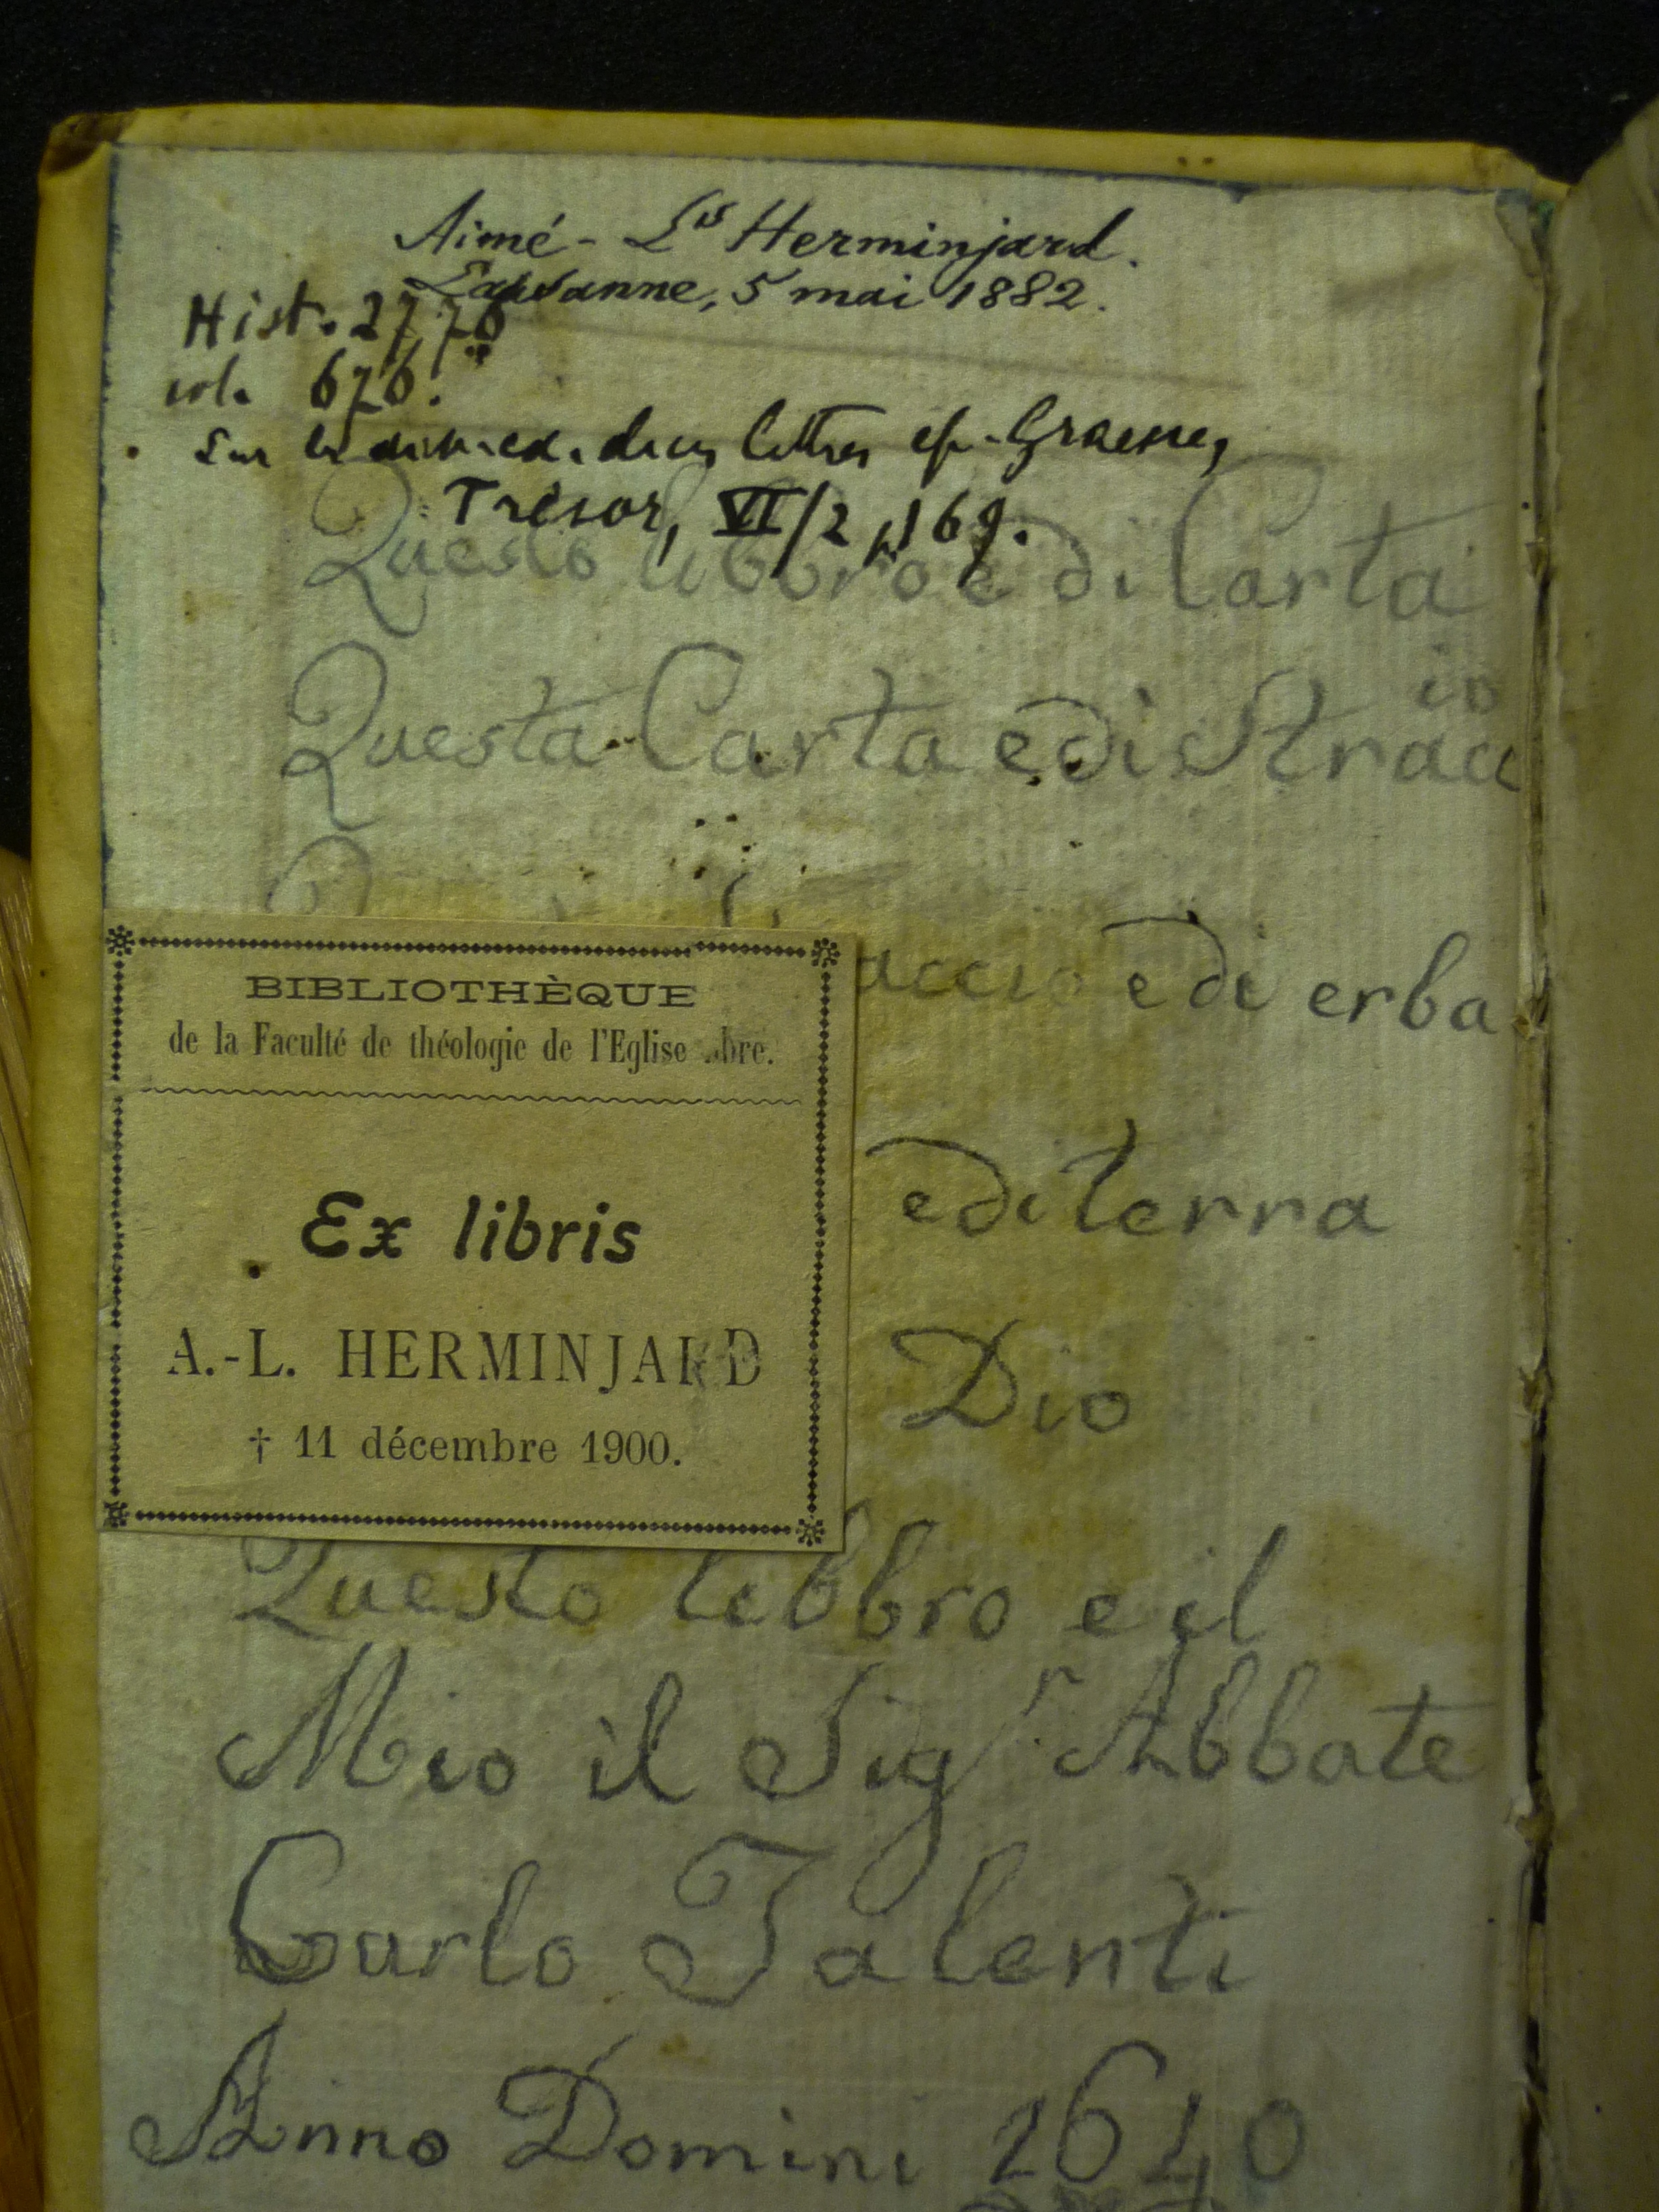 Aimé-Ls Herminjard.
Lausanne, 5 mai 1882.
Hist. 2776
vol. 676.
Sur les div. ed. lettres cf. Graesse,
Trésor, VI/2, p. 169.
Questo libbro è di Carta
Questa Carta e di Stracc
io
accio e di erba
e di terra
Dio
BIBLIOTHÈQUE
de la Faculté de théologie de l'Eglise bre.
Ex libris
A.-L. HERMINJARD
† 11 décembre 1900.
Questo libbro e il
Mio il Sigr. Abbate
Carlo Talenti
Anno Domini 1640